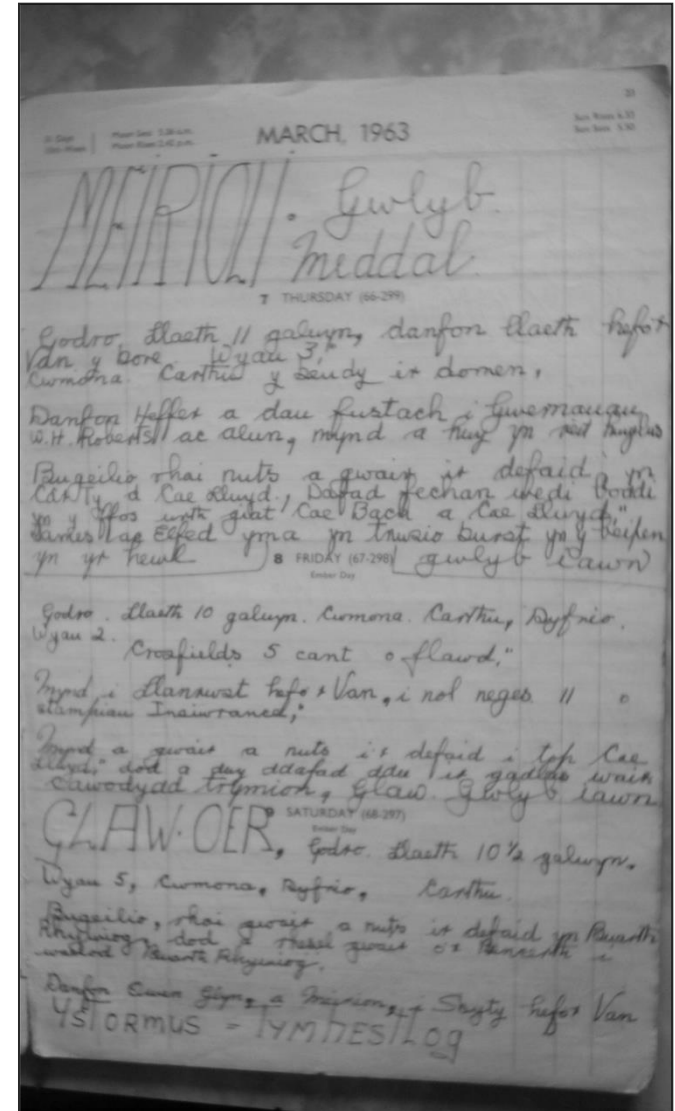 21
MARCH, 1963
MEIRIOLI. Gwlyb.
Meddal
7 THURSDAY (66-299)
Godro, Llaeth 11 galwyn, danfon llaeth hefo'r
Van y bore. Wyau 3,"
Cwmona. Carthu y Beudy i'r domen,
Danfon Heffer a dau fustach i Gwernauau
W.H. Roberts ac Alun, mynd a huy yn
Bugeilio rhai nuts a gwair i'r defaid, yn
Cae Ty, a Cae Llwyd, Dafad fechan wedi boddi
yn y ffos wrth giat Cae Bach a Cae Llwyd,"
James ac Elfed yma yn trwsio burst yn y beipen
yn yr hewl
8 FRIDAY (67-298)
gwlyb iawn
Ember Day
Godro. Llaeth 10 galwyn. Cwmona. Carthu, Dyfrio.
Wyau 2.
Crosfields 5 cant o flawd,"
Mynd i Llanrwst hefo'r Van, i nol neges // o
stampiau Insiwrance,"
Mynd a gwair a nuts i'r defaid i top Cae
Llwyd," dod a dwy ddafad ddu i'r gadlas wair
cawodydd trymion, Glaw. Gwlyb iawn
9 SATURDAY (68-297)
Ember Day
GLAW. OER, Godro. Llaeth 10½ galwyn.
Wyau 5, Cwmona, Dyfrio, Carthu.
Bugeilio, rhai gwair a nuts i'r defaid yn Buarth
Rhyniog, dod a gwair o'r Penrerth i
waelod Buarth Rhyniog.
Danfon Ewen Glyn, a Meirion, i hefo'r Van
YSTORMUS = TYMHESTLOg